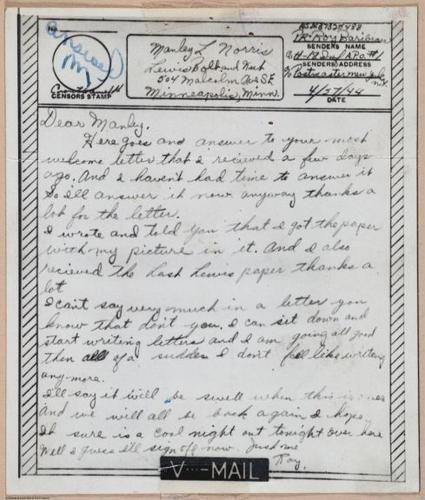 No.
answered
CENSORS STAMP
Manley L Norris
Lewis Bolt and Nut
504 Malcolm Ave S.E.
Minneapolis, Minn.
Roy
SENDERS NAME
APO #1
SENDERS ADDRESS
% Postmaster New York
N.Y.
4/27/44
DATE
Dear Manley.
Here goes and answer to your most
welcome letter that I recieved a few days
ago. And I haven't had time to answer it
So I'll answer it now anyway thanks a
lot for the letter.
I wrote and told you that I got the paper
with my picture in it. And I also
recieved the last Lewis paper thanks a
lot
I can't say very much in a letter you
know that don't you. I can sit down and
start writing letters and I am going all good
then all of a sudden I don't feel like writing
any more.
I'll say it will be swell when this is over
And we will all be back again I hope.
It sure is a cool night out tonight over here
Well I guess I'll sign off now. Just me
Roy.
V···—MAIL